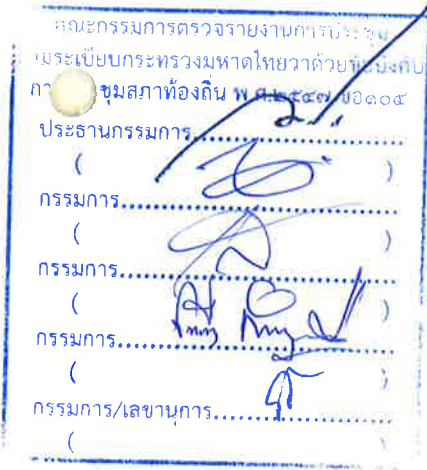 คณะกรรมการตรวจรายงานการประชุม
ระเบียบกระทรวงมหาดไทยว่าด้วยข้อบังคับ
กา ชุมสภาท้องถิ่น พ.ศ.๒๕๔๗ ข้อ๑๐๕
ประธานกรรมการ........................
( )
กรรมการ........................
( )
กรรมการ........................
( )
กรรมการ........................
( )
กรรมการ/เลขานุการ........................
( )